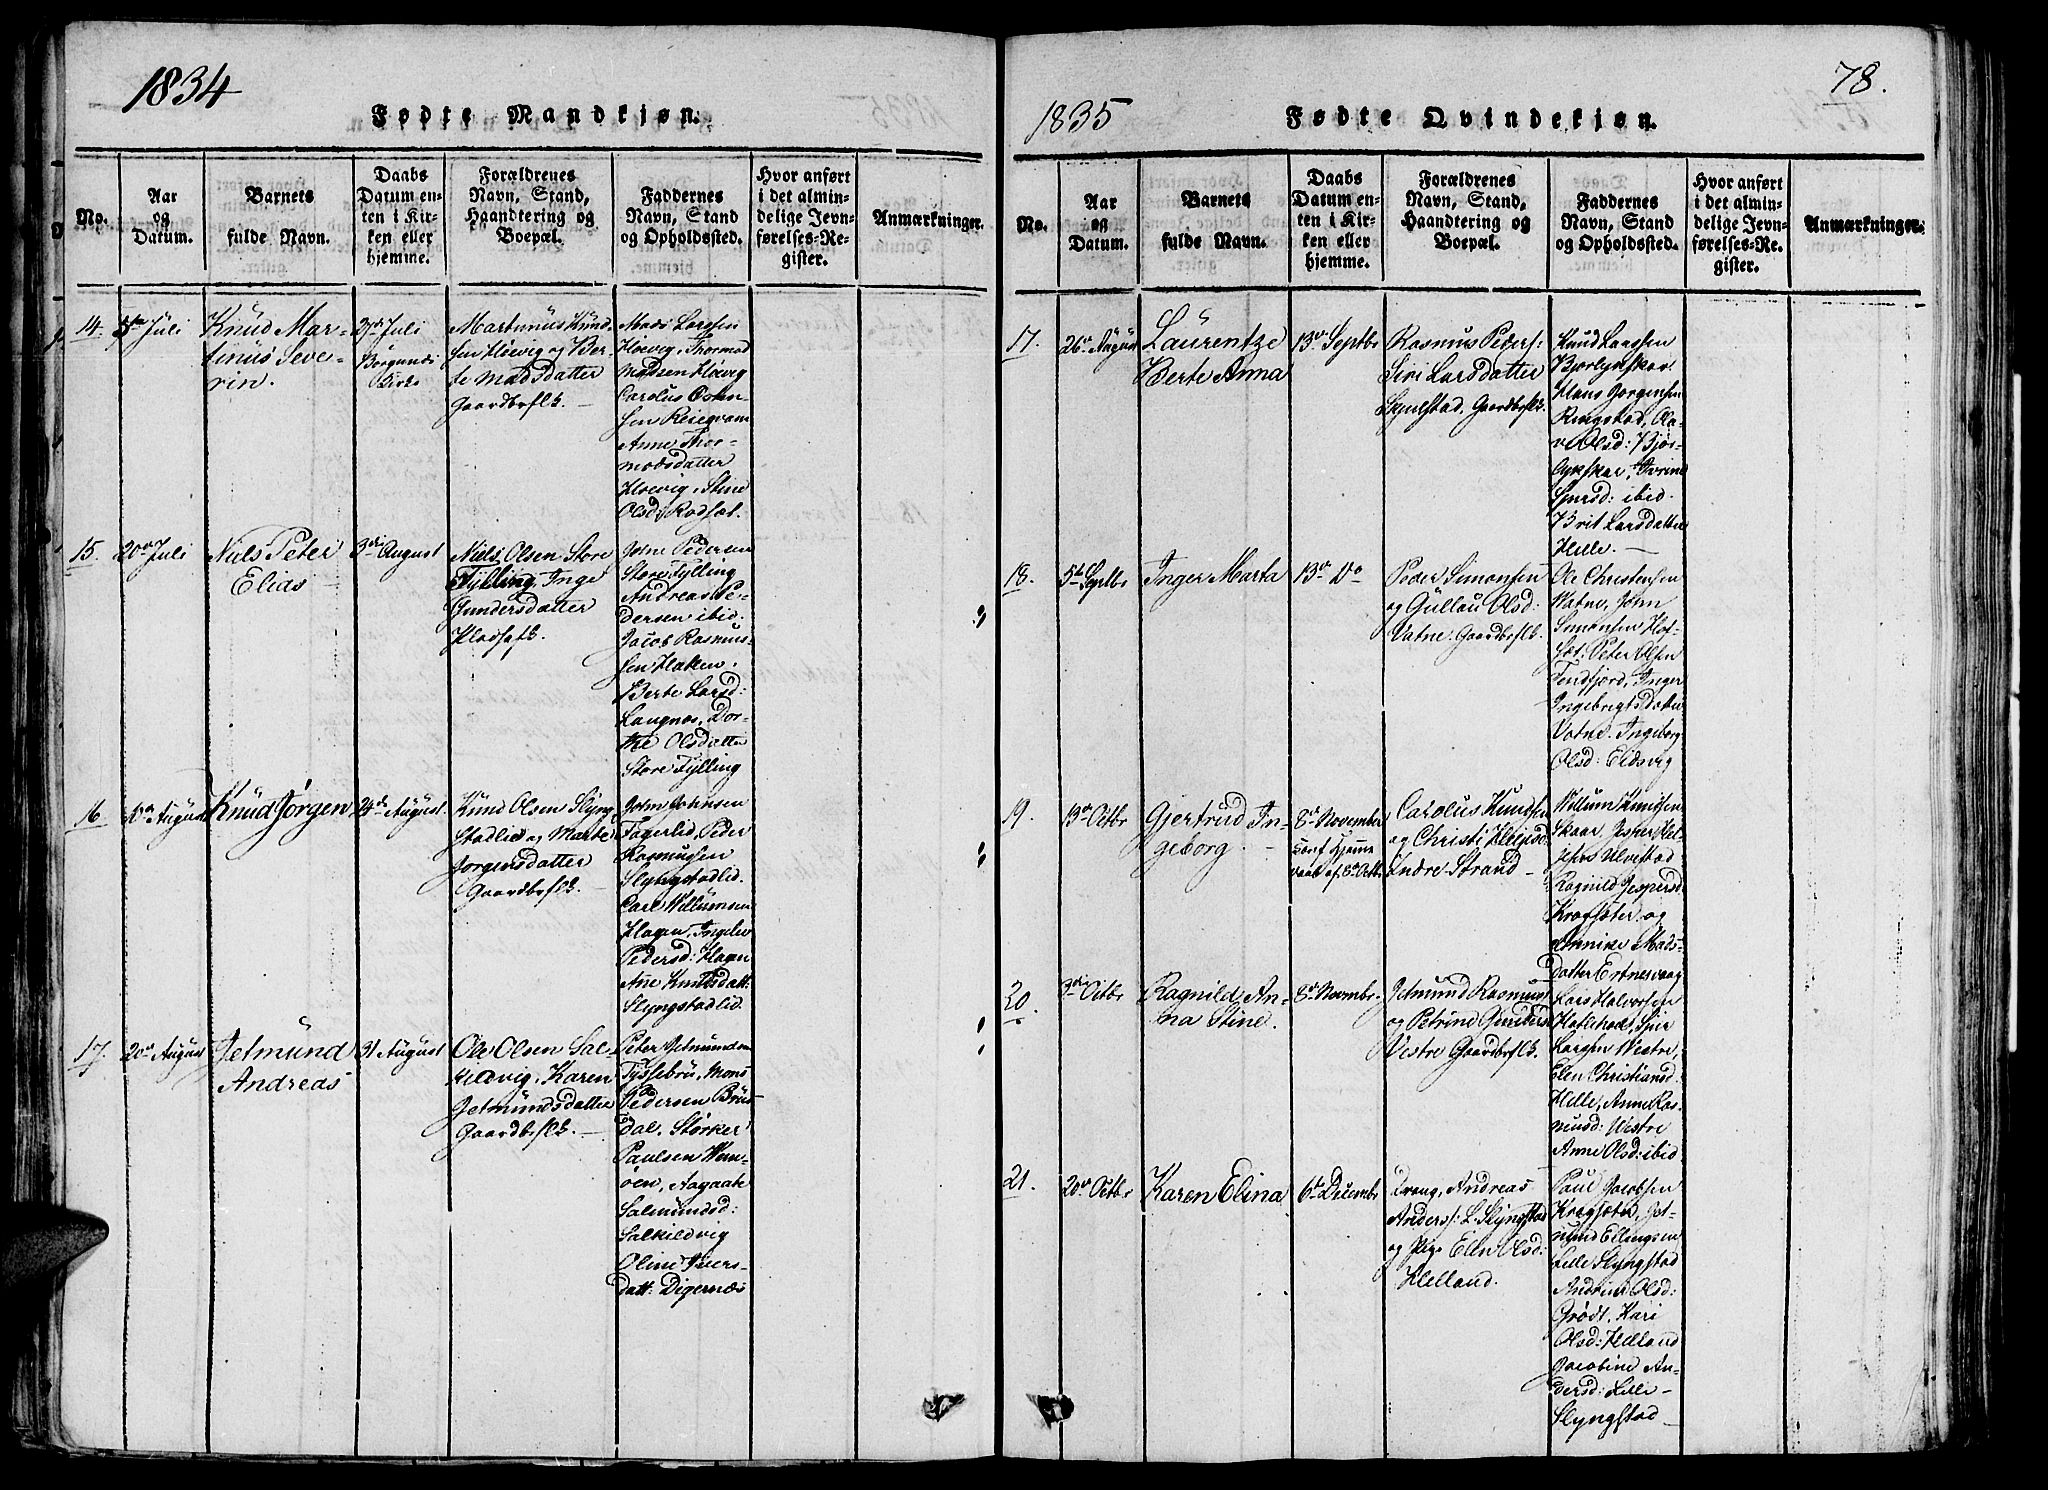 1834
Fødte Mandkjøn.
No.
Aar
og
Datum.
Barnets
fulde Navn.
Daabs
Datum en-
ten i Kir-
ken eller
hjemme.
Forældrenes
Navn, Stand,
Haandtering og
Boepæl.
Faddernes
Navn, Stand
og Opholdssted.
Hvor anført
i det almin-
delige Jevn-
førelses-Re-
gister.
Anmærkninger.
14.
5te Juli
Knud Mar-
tinus Seve-
rin.
27de Juli
Borgunds
Kirke
Martinus Knud-
sen Hoevig og Ber-
te Madsdatter
Gaardbrflk. —
Mads Larssen
Hoevig, Thormod
Madsen Hoevig
Carolus
sen
Anne Thor-
modsdatter
Hoevig, Stine
Olsd: Rodset.
15.
20de Juli
Niels Peter
Elias —
3die August
Niels Olsen Store
Tylling, Inge
Gundersdatter
Pedersen
Store Tylling
Andreas Pe-
dersen ibid:
Jacob Rasmus-
sen Haken,
Berte Larsd:
Langnes, Dor-
the Olsdatter
Store Tylling
16
10de August
Knud Jørgen
24de August.
Knud Olsen Slyng-
stadlid og Marte
Jorgensdatter
Gaardbrflk. —
John Johnsen
Fagerlid, Peder
Rasmussen
Slyngstadlid.
Carl Willumsen
Hagen, Ingeb:
Pedersd: Hagen
Ane Knudsdatt:
Slyngstadlid.
17.
20de August
Jetmund
Andreas
31 August
Ole Olsen Sal-
kelvig, Karen
Jetmundsdatter
Gaardbrflk. —
Peter Jetmundsen
Tyssebro, Mons
Pedersen Brus-
dal, Størker
Paulsen Wem-
øen, Aagaate
Salmundsd:
Salkildvig
Oline Ivers-
datt: Digernæs
78.
1835
Fødte Qvindekjøn.
No.
Aar
og
Datum.
Barnets
fulde Navn.
Daabs
Datum en-
ten i Kir-
ken eller
hjemme.
Forældrenes
Navn, Stand,
Haandtering og
Boepæl.
Faddernes
Navn, Stand
og Opholdssted.
Hvor anført
i det almin-
delige Jevn-
førelses-Re-
gister.
Anmærkninger.
17.
26de August
Laurentze
Berte Anna
13de Septbr
Rasmus Peders:
Siri Larsdatter
Skjelstad, Gaardbrflk.
Knud Larssen
Bjorlykskar
Hans Jorgensen
Ringstad, Ola-
ve Olsd: Bjor-
lykskar,
ibid.
Brit Larsdatter
Hille. —
18.
5te Septbr
Inger Marta
13de Do
Peder Simonsen
og Gullau Olsd:
Vatne. Gaardbrflk.
Ole Christensen
Watne, John
Simonsen Hof-
set, Peter Olsen
Tenfjord, Inger
Ingebrigtsdatter
Vatne, Ingeborg
Olsd: Eidsvig
19.
13de Octbr
Gjertrud In-
geborg. —
8de November
Conf Hjemme
daab af
Carolus Knudsen
og Christi
Indre Strand —
Willum Knudsen
Skaar, Jesper
Ulvestad
Ragnild Jespersd.
Krogsæter og
Annike Mads-
datter Ertnesvaag
20.
3die Octbr
Ragnild An-
na Stine.
8de Novembr.
Jetmund Rasmuss:
og Petrine
Vestre Gaardbrflk.
Lars Halvorsen
Larsen Westre,
Elen Christiansd:
Hille, Anne Ras-
musd: Westre
Anne Olsd: ibid
21.
20de Octbr
Karen Elina
6te Decembr
Dreng, Andreas
Anders: L. Slyngstad
og Pige Elen Olsd:
Helland.
Paul Jacobsen
Krogsæter, Jet-
mund Ellingsen
Lille Slyngstad
Andrine Olsd:
Grødt, Kari
Olsd: Helland
Jacobine An-
dersd: Lille-
Slyngstad —